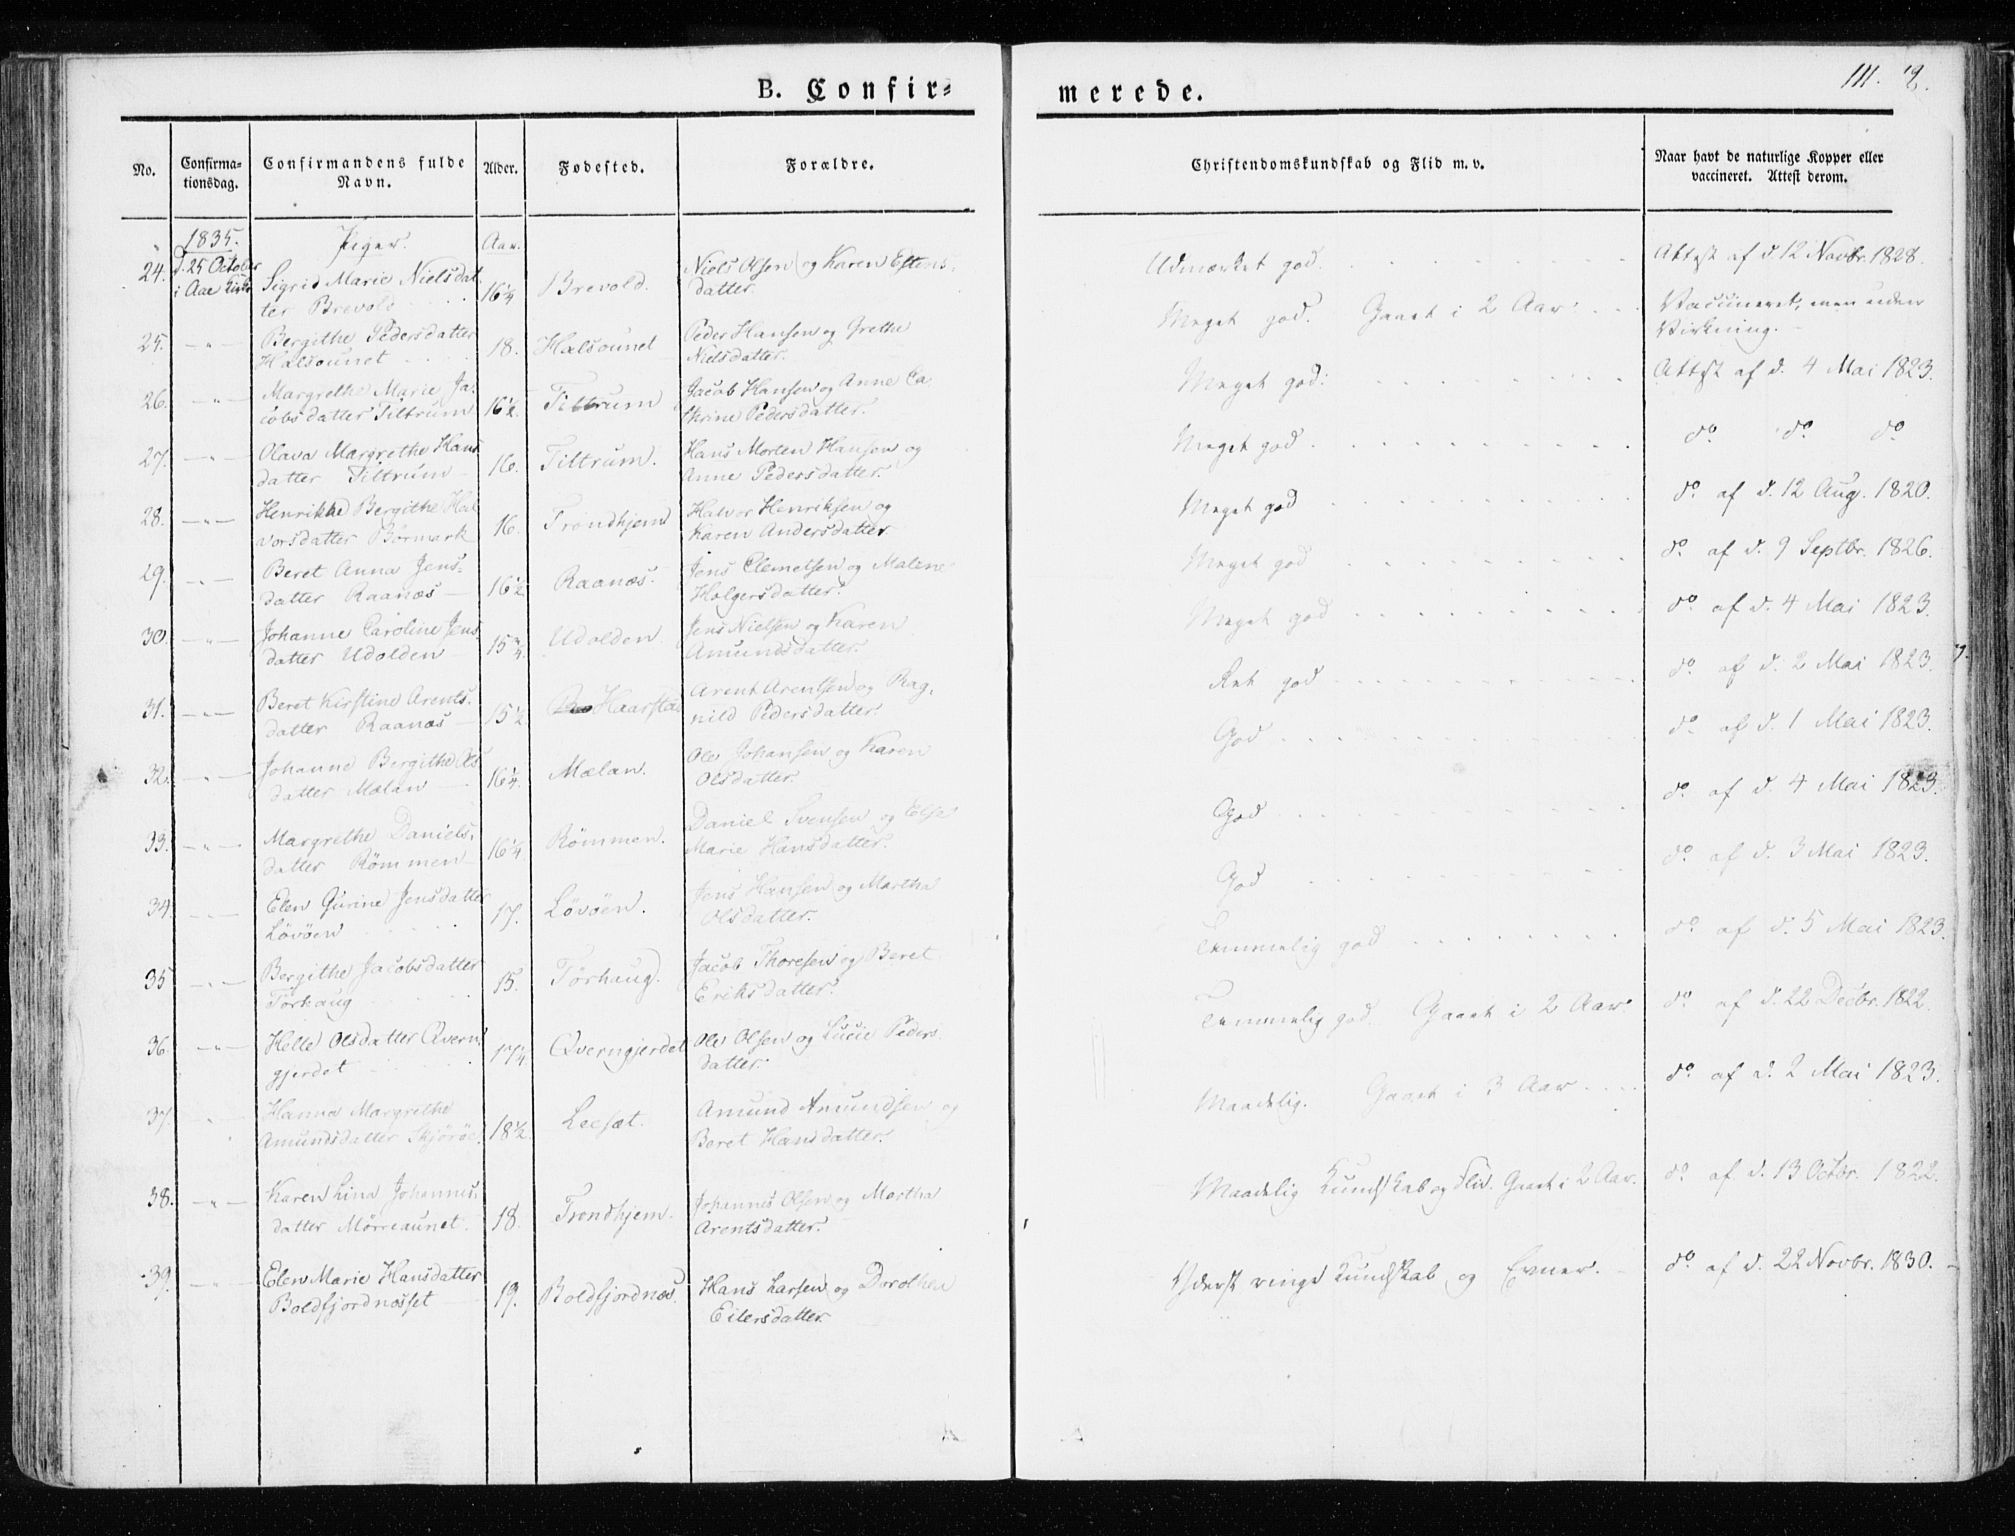 111. 2.
B. Confir=
merede.
No.
Confirma-
tionsdag.
Confirmandens fulde
Navn.
Alder.
Fødested.
Forældre.
Christendomskundskab og Flid m. v.
Naar havt de naturlige Kopper eller
vaccineret. Attest derom.
1835. Piger. Aar.
24. d. 25 October
i Aae Kirke
Sigrid Marie Nielsdat
ter Brevold
16¼ Brevold.
Niels Olsen og Karen Estens
datter.
Udmærket god.
Attest af d. 12 Novbr. 1828.
25. -"-
Bergithe Pedersdatter
Halsounet
18. Halsounet
Peder Hansen og Grethe
Nielsdatter.
Meget god. Gaaet i 2 Aar.
Vaccineret, men uden
Virkning.
26. -"-
Margrethe Marie Ja-
cobsdatter Tiltrum
16½ Tiltrum
Jacob Hansen og Anne Ca
thrine Pedersdatter.
Meget god.
Attest af d. 4 Mai 1823.
27. -"-
Olava Margrethe Hans
datter Tiltrum
16. Tiltrum.
Hans Morten Hansen og
Anne Pedersdatter.
Meget god.
do do do
28. -"-
Henrikke Bergithe Hal
vorsdatter Børmark
16. Trondhjem
Halvor Henriksen og
Karen Andersdatter
Meget god
do af d. 12 Aug. 1820.
29. -"-
Beret Anna Jens-
datter Raanæs
16½ Raanæs.
Jens Clemetsen og Malene
Holgersdatter.
Meget god
do af d. 9 Septbr. 1826.
30. -"-
Johanne Caroline Jens
datter Udolden
15¾ Udolden.
Jens Nielsen og Karen
Amundsdatter.
Meget god
do af d. 4 Mai 1823.
31. -"-
Beret Kirstine Arents-
datter Raanæs
15½ Haarstad
Arent Arentsen og Rag-
nild Pedersdatter.
Ret god
do af d. 2 Mai 1823.
32. -"-
Johanne Bergithe Ols
datter Mælan
16¼ Mælan.
Ole Johansen og Karen
Olsdatter.
God
do af d. 1 Mai 1823.
33. -"-
Margrethe Daniels-
datter Rømmen
16¼ Rømmen.
Daniel Svensen og Else
Marie Hansdatter.
God
do af d. 4 Mai 1823.
34. -"-
Elen Gurine Jensdatter
Løvøen
17. Løvøen.
Jens Hansen og Martha
Olsdatter.
God
do af d. 3 Mai 1823.
35. -"-
Bergithe Jacobsdatter
Tørhaug
15. Tørhaug.
Jacob Thoresen og Beret
Eriksdatter.
Temmelig god
do af d. 5 Mai 1823.
36. -"-
Helle Olsdatter Qvern-
gjerdet
17¼ Qverngjerdet
Ole Olsen og Lucie Peders
datter.
Temmelig god. Gaaet i 2 Aar
do af d. 22 Decbr. 1822
37. -"-
Hanna Margrethe
Amundsdatter Skjørøe
18½ Leesæt.
Amund Amundsen og
Beret Hansdatter.
Maadelig. Gaaet i 3 Aar
do af d. 2 Mai 1823.
38. -"-
Karen Lina Johannes-
datter Mørreaunet.
18. Trondhjem.
Johannes Olsen og Martha
Arentsdatter.
Maadelig Kundskab og Flid. Gaaet i 2 Aar.
do af d. 13 Octbr. 1822.
39. -"-
Elen Marie Hansdatter
Boldfjordnæsset
19. Boldfjordnæs.
Hans Larsen og Dorothea
Eilersdatter
Yderst ringe Kundskab og Evner.
do af d. 22 Novbr. 1830.